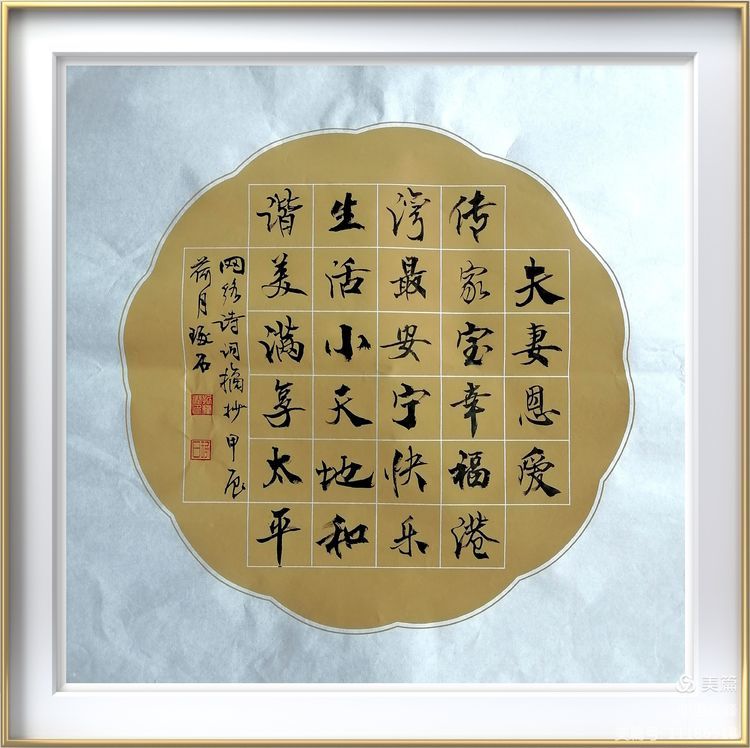 夫妻恩爱
传家宝幸福港
湾最安宁快乐
生活小天地和
谐美满享太平
网络诗词摘抄甲辰
荷月琢石
美篇